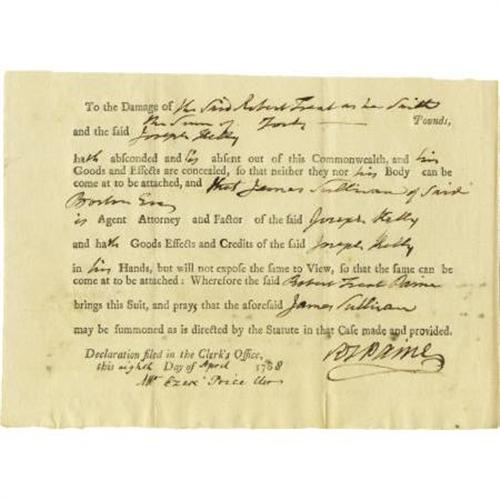 To the Damage of the Said Robert Treat as he Saith
the Sum of Forty Pounds,
and the said Joseph Kelly
hath absconded and is absent out of this Commonwealth, and his
Goods and Effects are concealed, so that neither they nor his Body can be
come at to be attached, and that James Sullivan of Said
Boston Esq
is Agent Attorney and Factor of the said Joseph Kelly
and hath Goods Effects and Credits of the said Joseph Kelly
in his Hands, but will not expose the same to View, so that the same can be
come at to be attached: Wherefore the said Robert Treat Paine
brings this Suit, and prays that the aforesaid James Sullivan
may be summoned as is directed by the Statute in that Case made and provided.
Declaration filed in the Clerk's Office,
this eighth Day of April 1788
RTPaine
Att Ezek Price Cler